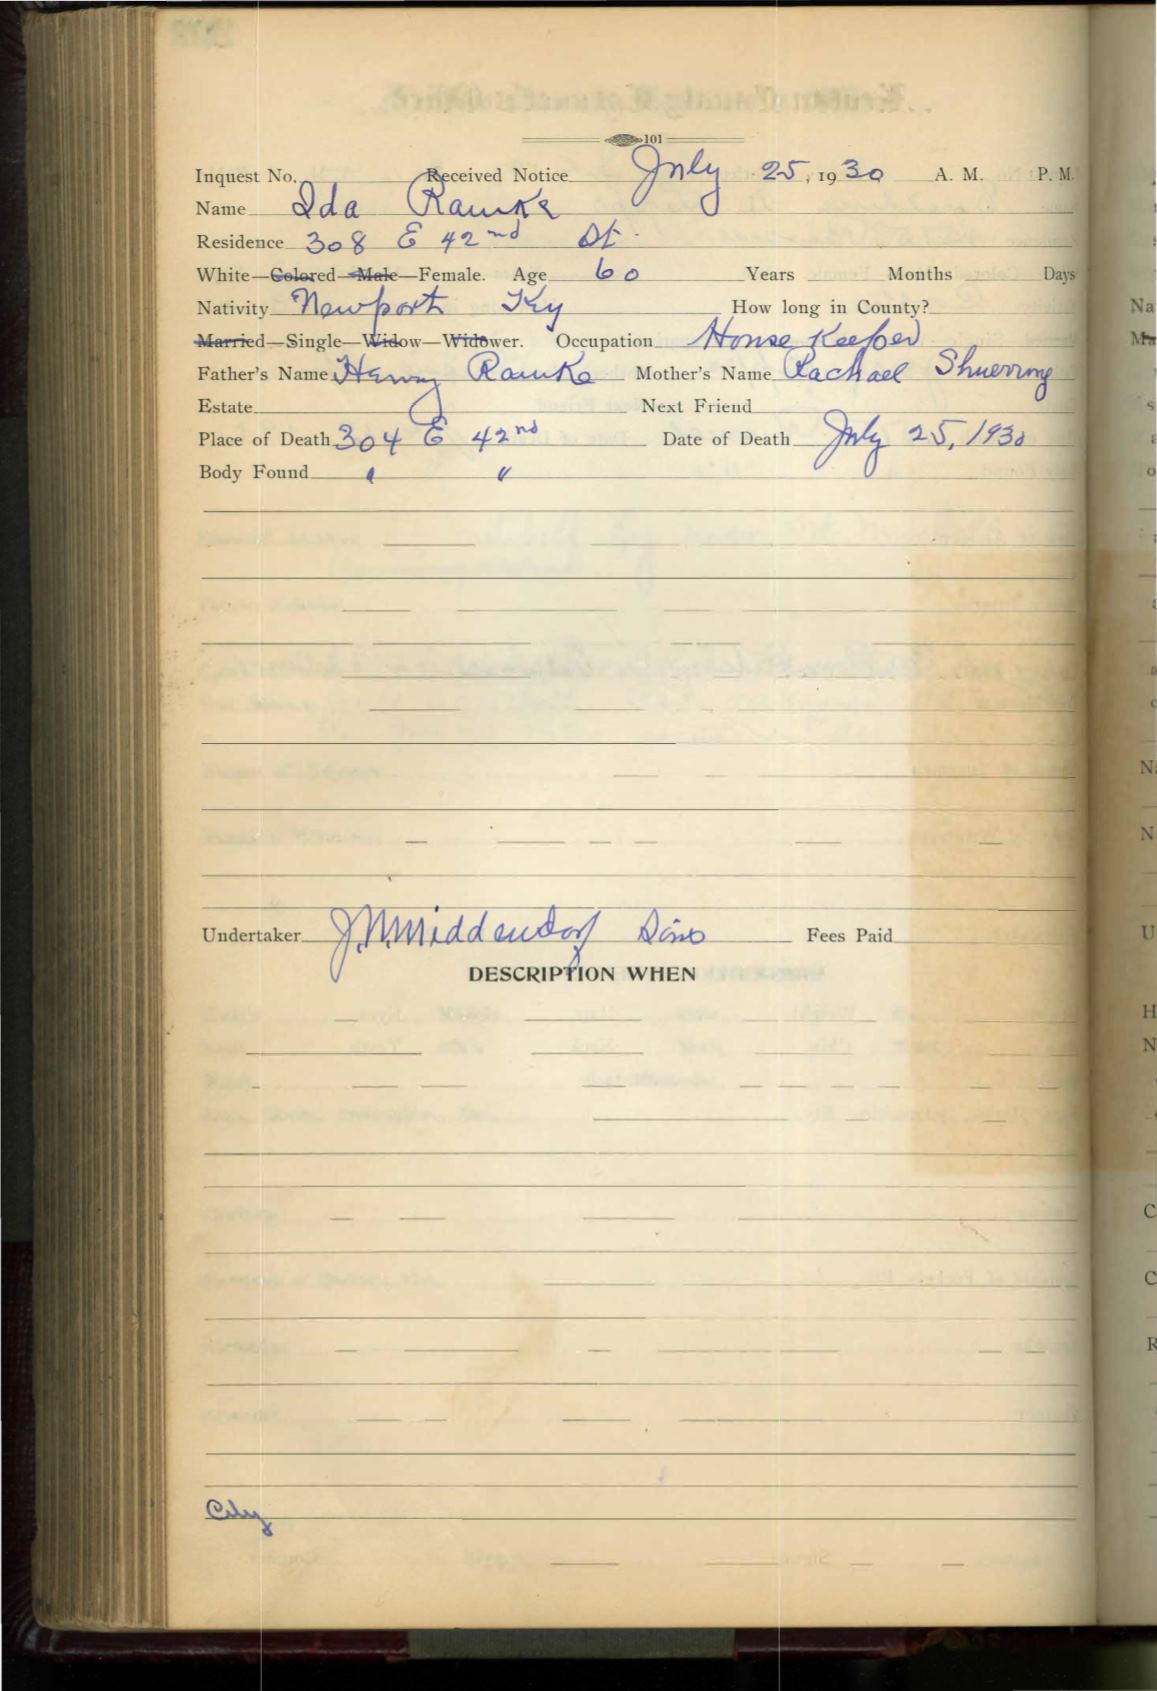 101
Inquest No. Received Notice July 25, 1930 A. M. P. M.
Name Ida Ramke
Residence 308 E 42nd St.
White—Colored—Male—Female. Age 60 Years Months Days
Nativity Newport Ky How long in County?
Married—Single—Widow—Widower. Occupation House Keeper
Father's Name Henry Ramke Mother's Name Rachael Shuerring
Estate Next Friend
Place of Death 304 E 42nd Date of Death July 25, 1930
Body Found " "
Undertaker J.N. Middendorf Sons Fees Paid
DESCRIPTION WHEN
City